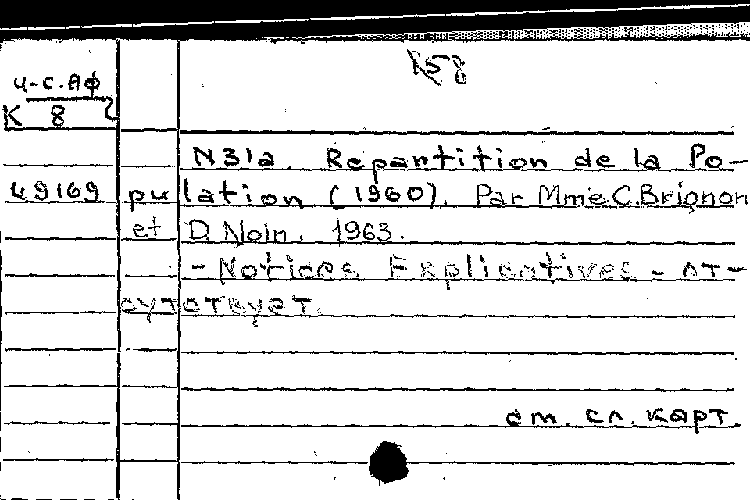 158
ч-с.Аф
К 8
N31a. Repantition de la Po-
49169 pulation (1960). Par Mme C. Brignon
et D. Noin. 1963.
- Notices Explicatives - от-
сутствует.
см. сл. карт.